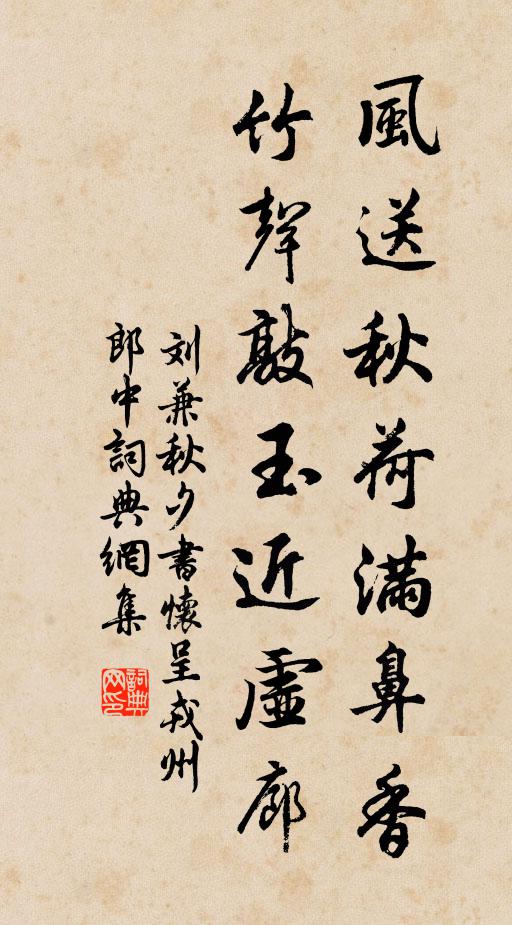 風送秋荷滿鼻香
竹聲敲玉近虛廊
刘兼秋夕書懷呈戎州
郎中詞典網集
詞典
网印